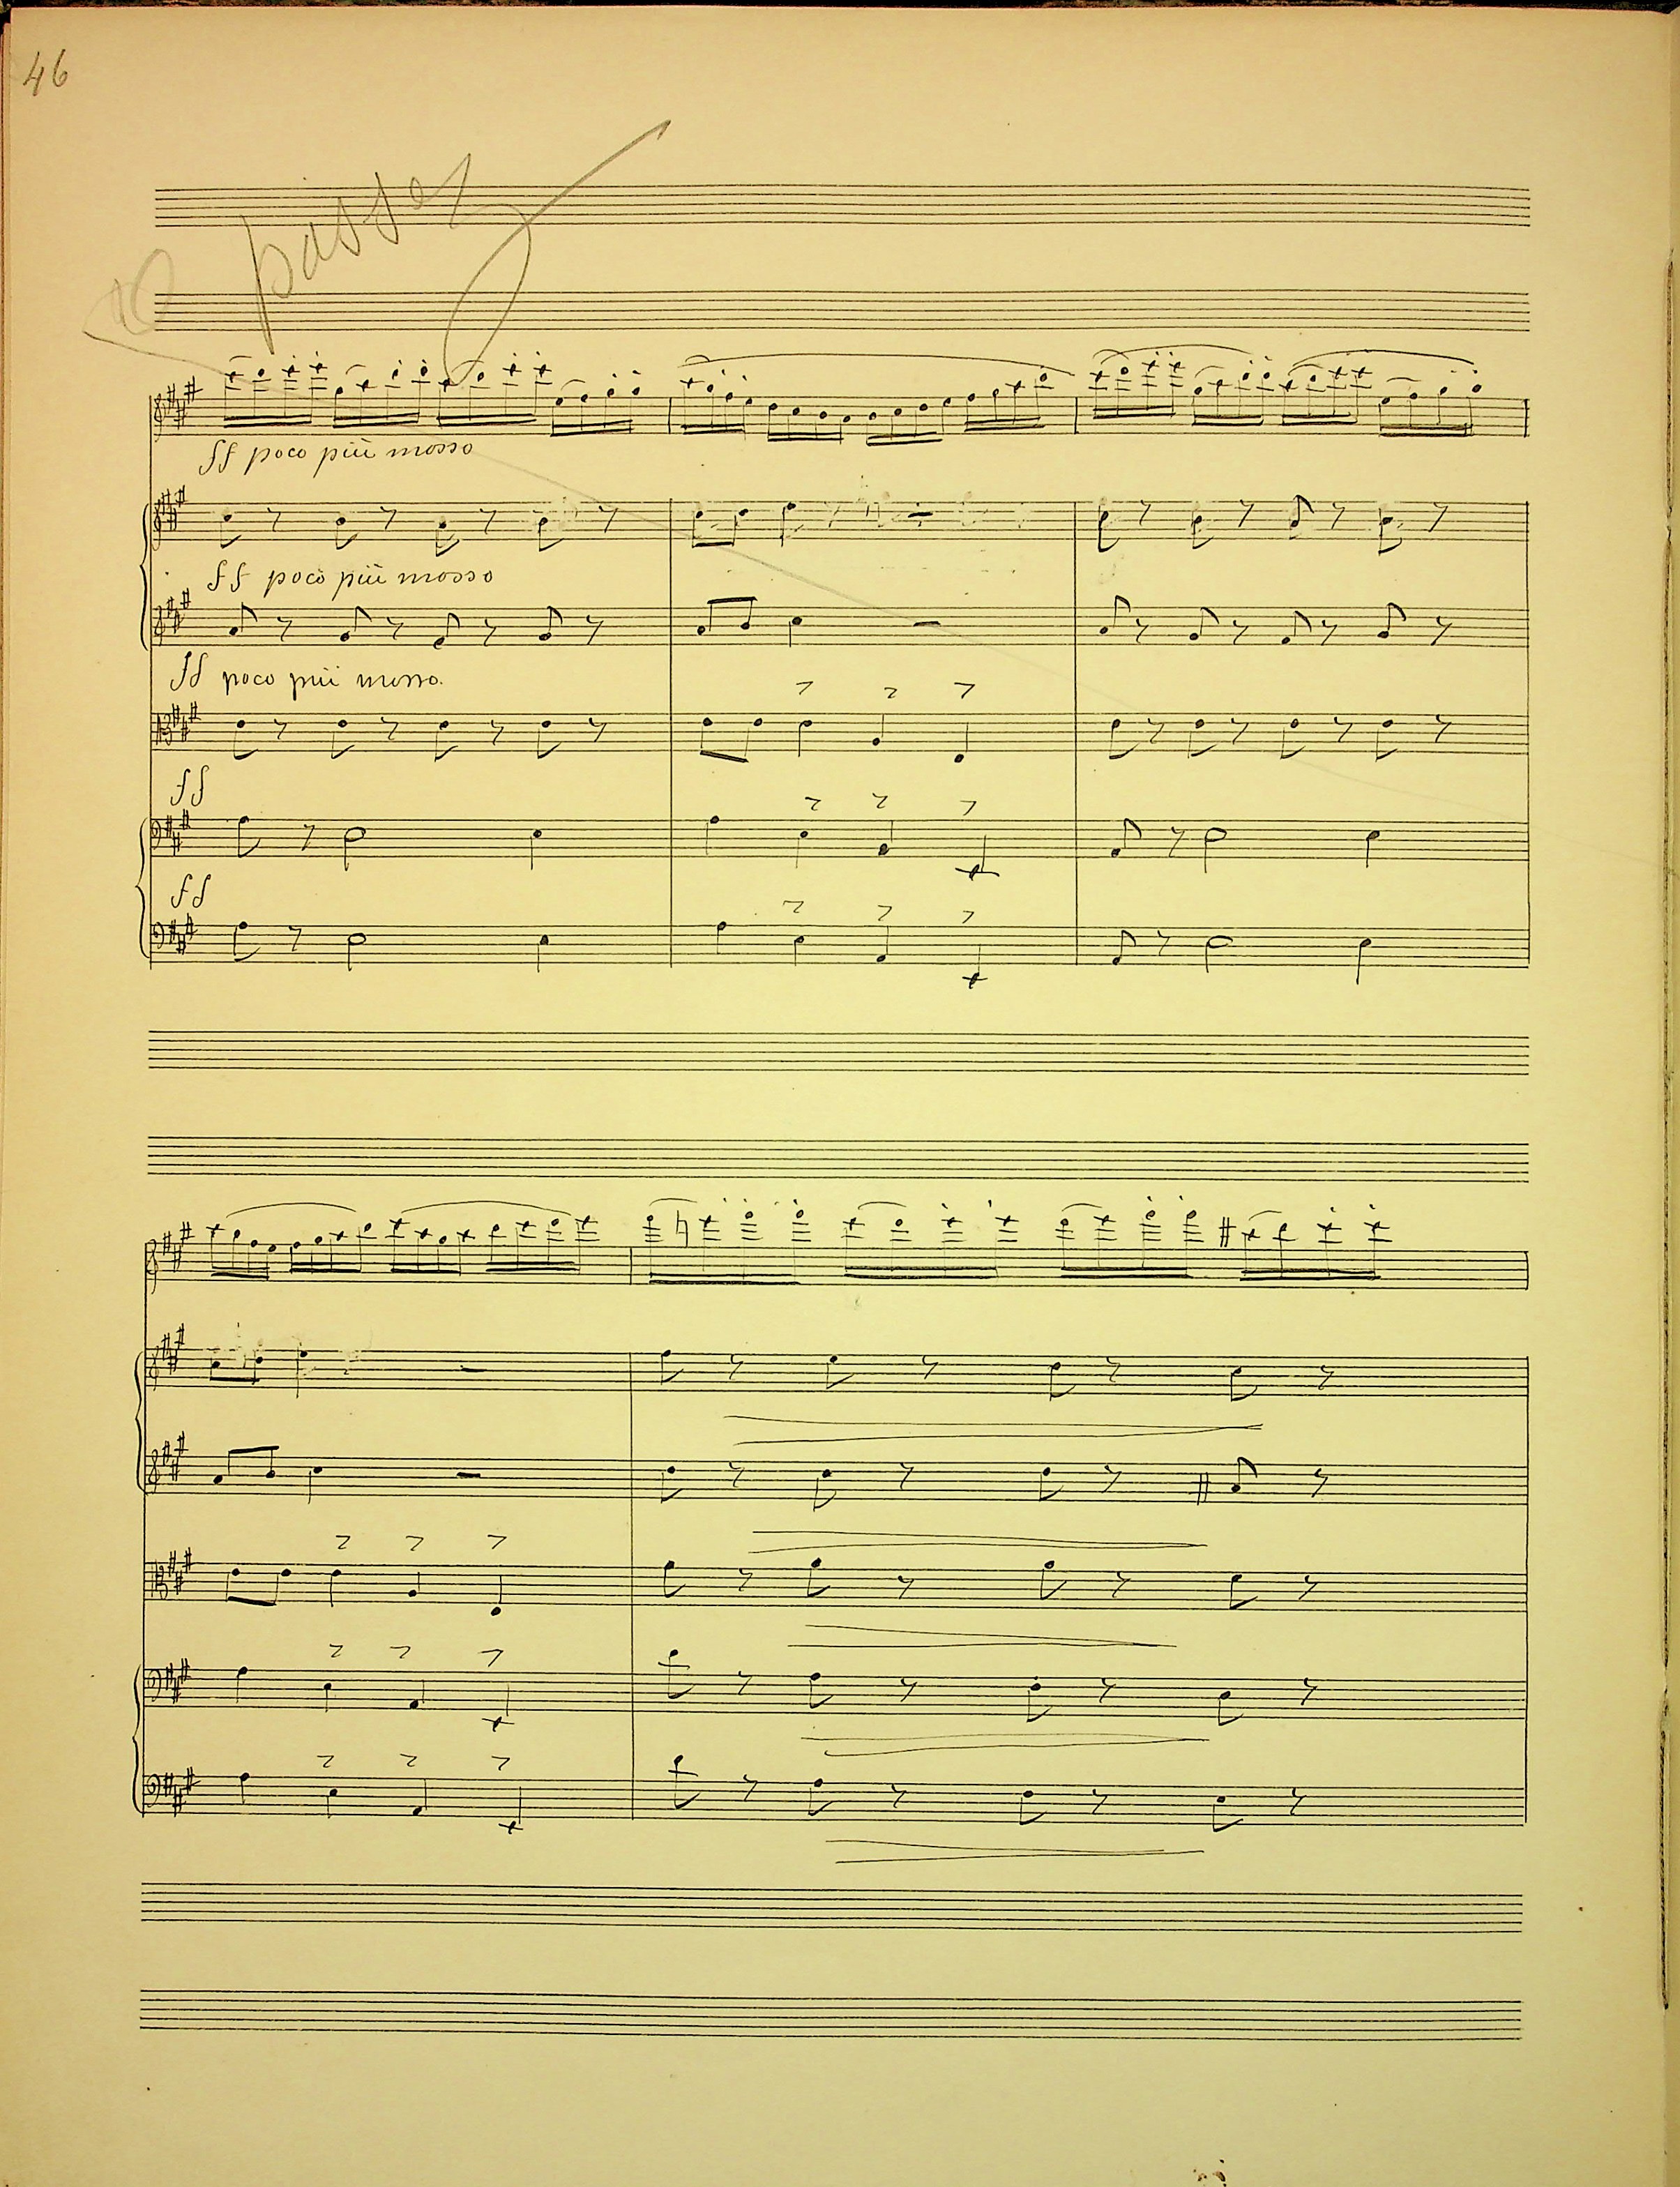 46
passez
ff poco più mosso
ff poco più mosso
ff poco più mosso.
ff
ff